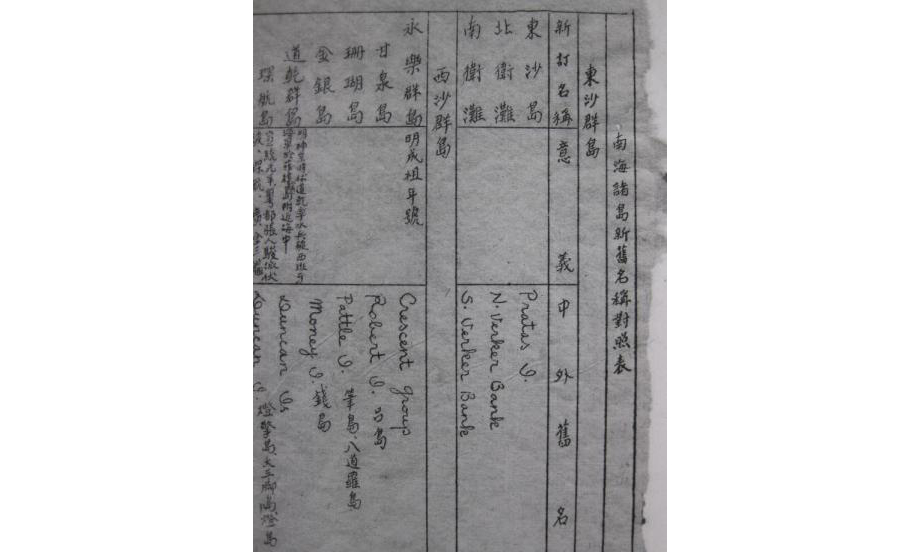 南海諸島新舊名稱對照表
東沙群島
新訂名稱 意義 中外舊名
東沙島 Pratas I.
北衛灘 N. Verker Bank
南衛灘 S. Verker Bank
西沙群島
永樂群島 明成祖年號 Crescent group
甘泉島 Robert I.
珊瑚島 Pattle I. 筆島 八道羅島
金銀島 Money I. 錢島
道乾群島 Duncan Is
琛航島 Duncan I. 燈擎島 大三脚島 燈島